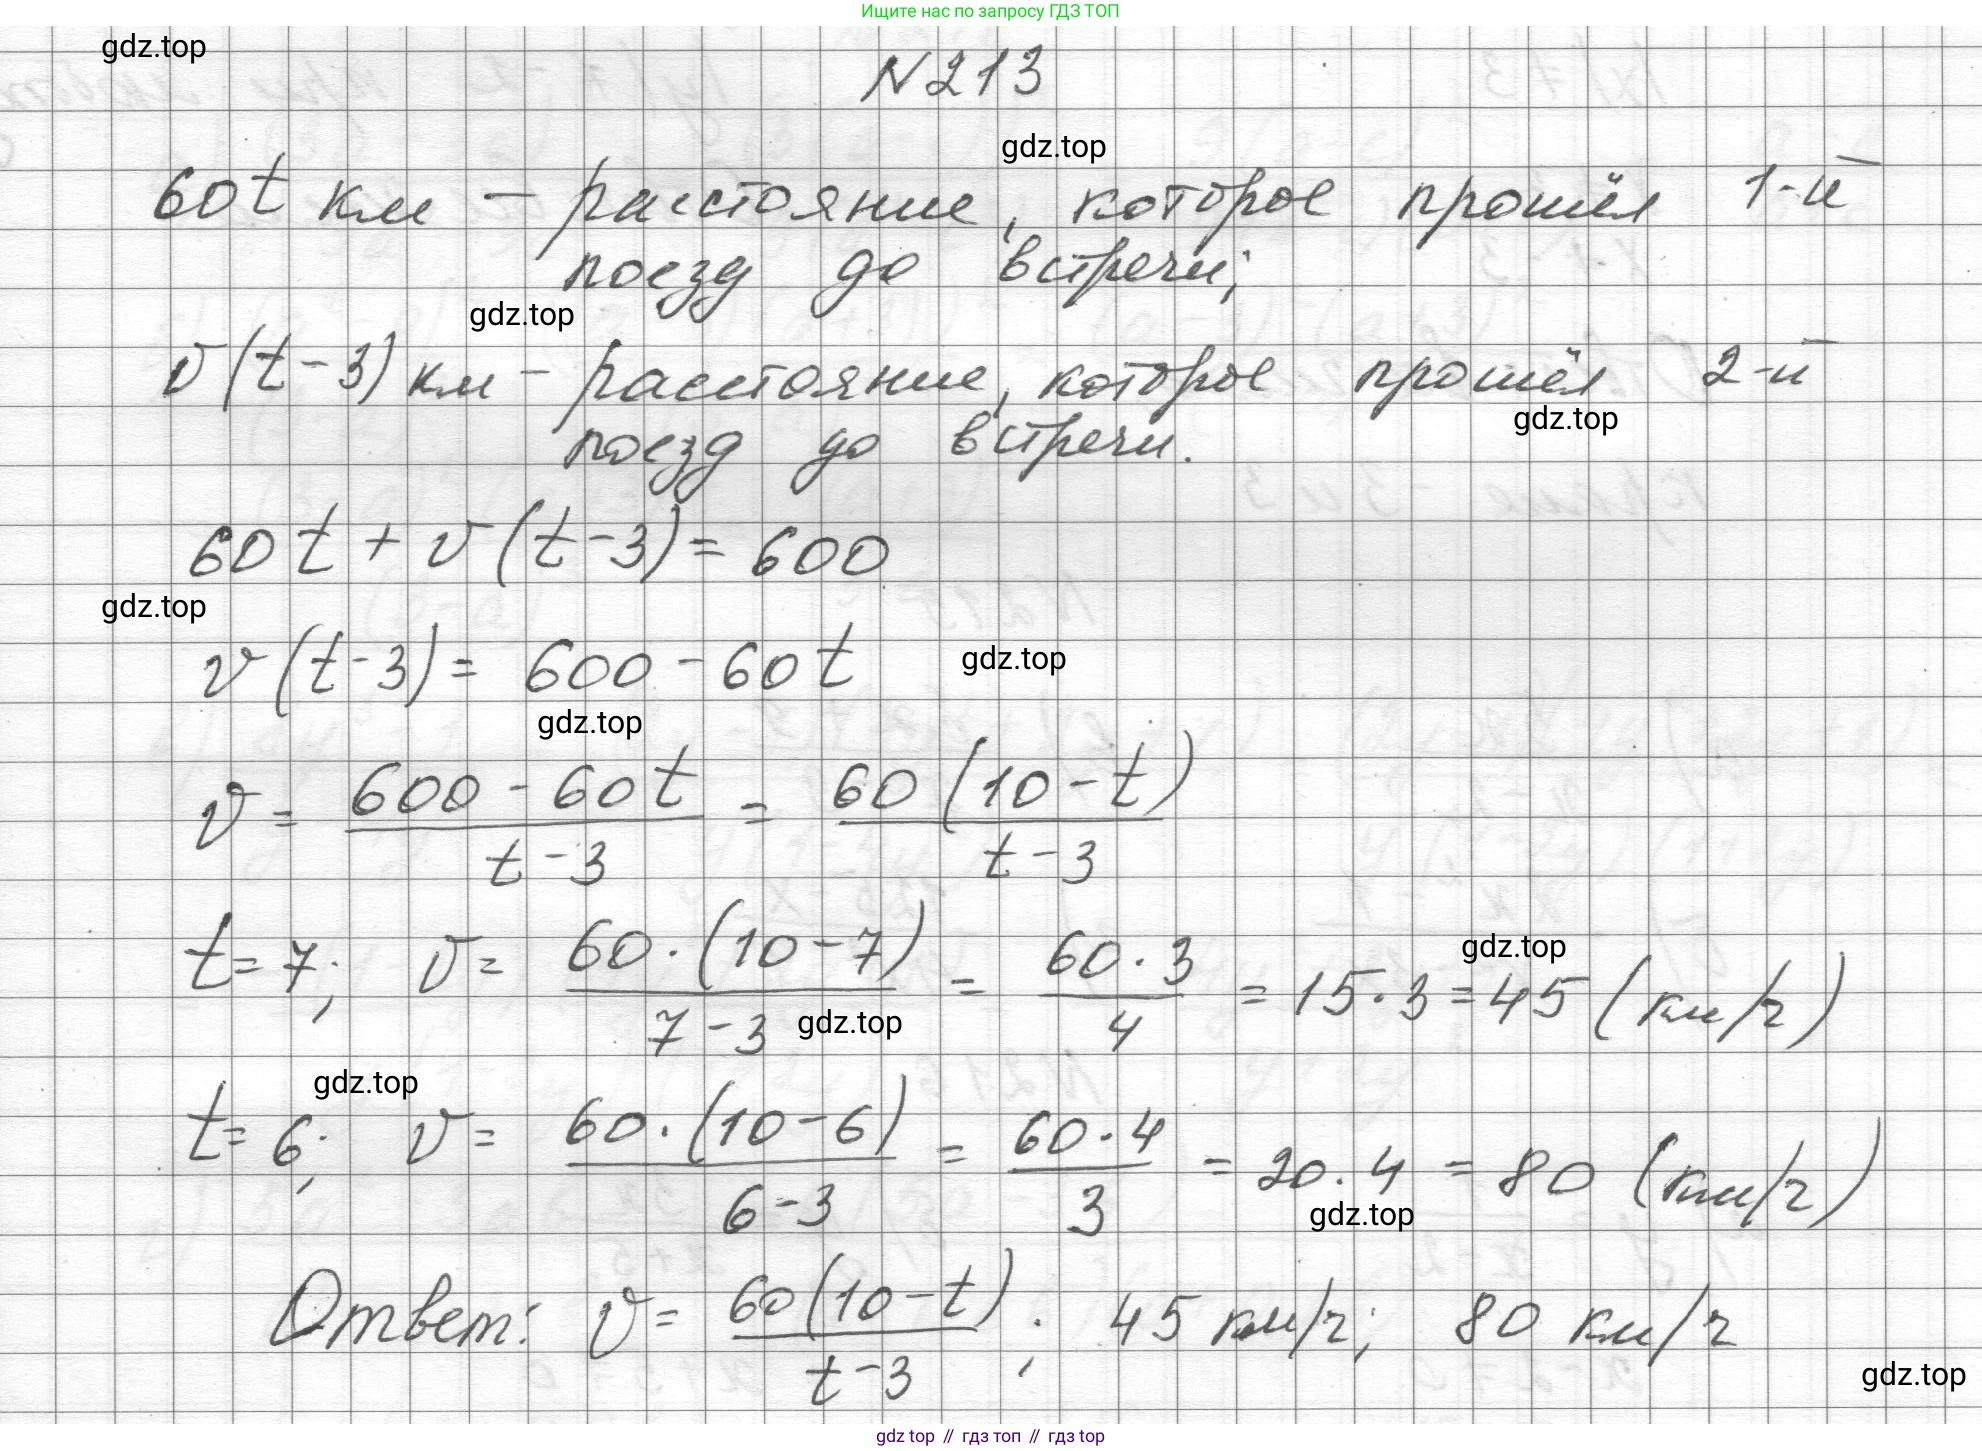 Ищите нас по запросу ГДЗ ТОП
gdz.top
N213
gdz.top
60t км – расстояние, которое прошёл 1-й
поезд до встречи;
gdz.top
v(t-3) км – расстояние, которое прошёл 2-й
gdz.top
поезд до встречи.
60t + v(t-3) = 600
gdz.top
v(t-3) = 600 - 60t
gdz.top
gdz.top
v = (600 - 60t)/(t-3) = 60(10-t)/(t-3)
t = 7; v = 60·(10-7)/(7-3) = 60·3/4 = 15·3 = 45 (км/ч)
gdz.top
gdz.top
gdz.top
t = 6; v = 60·(10-6)/(6-3) = 60·4/3 = 20·4 = 80 (км/ч)
gdz.top
Ответ: v = 60(10-t)/(t-3); 45 км/ч; 80 км/ч
gdz.top
gdz top // гдз топ // гдз top